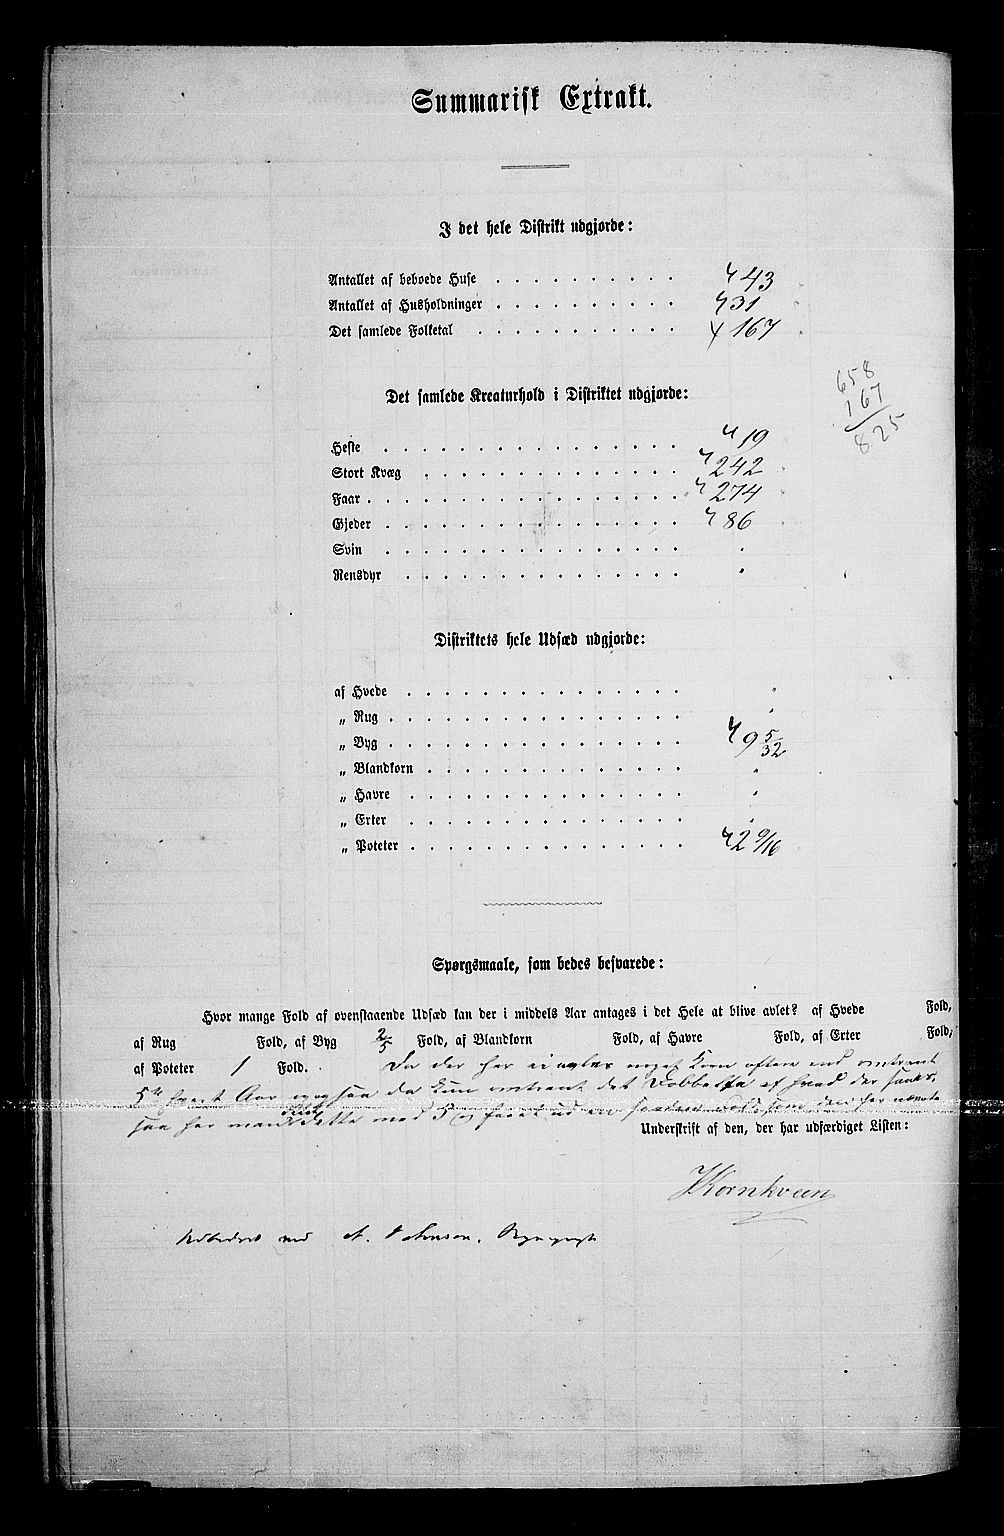 Summarisk Extrakt.
I det hele Distrikt udgjorde:
Antallet af beboede Huse . . . . . . . . . . 43
Antallet af Husholdninger . . . . . . . . . . 31
Det samlede Folketal . . . . . . . . . . . 167
658
167
825
Det samlede Kreaturhold i Distriktet udgjorde:
Heste . . . . . . . . . . . . . . . 19
Stort Kvæg . . . . . . . . . . . . . 242
Faar . . . . . . . . . . . . . . . . 274
Gjeder . . . . . . . . . . . . . . . 86
Svin . . . . . . . . . . . . . . . "
Rensdyr . . . . . . . . . . . . . . "
Distriktets hele Udsæd udgjorde:
af Hvede . . . . . . . . . . . . . . "
„ Rug . . . . . . . . . . . . . . . "
„ Byg . . . . . . . . . . . . . . . 9 5/32
„ Blandkorn . . . . . . . . . . . . . "
„ Havre . . . . . . . . . . . . . . "
„ Erter . . . . . . . . . . . . . . "
„ Poteter . . . . . . . . . . . . . . 2 9/16
Spørgsmaale, som bedes besvarede:
Hvor mange Fold af ovenstaaende Udsæd kan der i middels Aar antages i det Hele at blive avlet? af Hvede Fold,
af Rug Fold, af Byg 2/5 Fold, af Blandkorn Fold, af Havre Fold, af Erter Fold,
af Poteter 1 Fold. Da der her avles Korn oftere end omtrent
5te hvert Aar da kun omtrent det Dobbelte af hvad der saaes,
saa her dette med 5 ud som den her nævnte
Underskrift af den, der har udfærdiget Listen:
Kornkveen
A. Johnson,